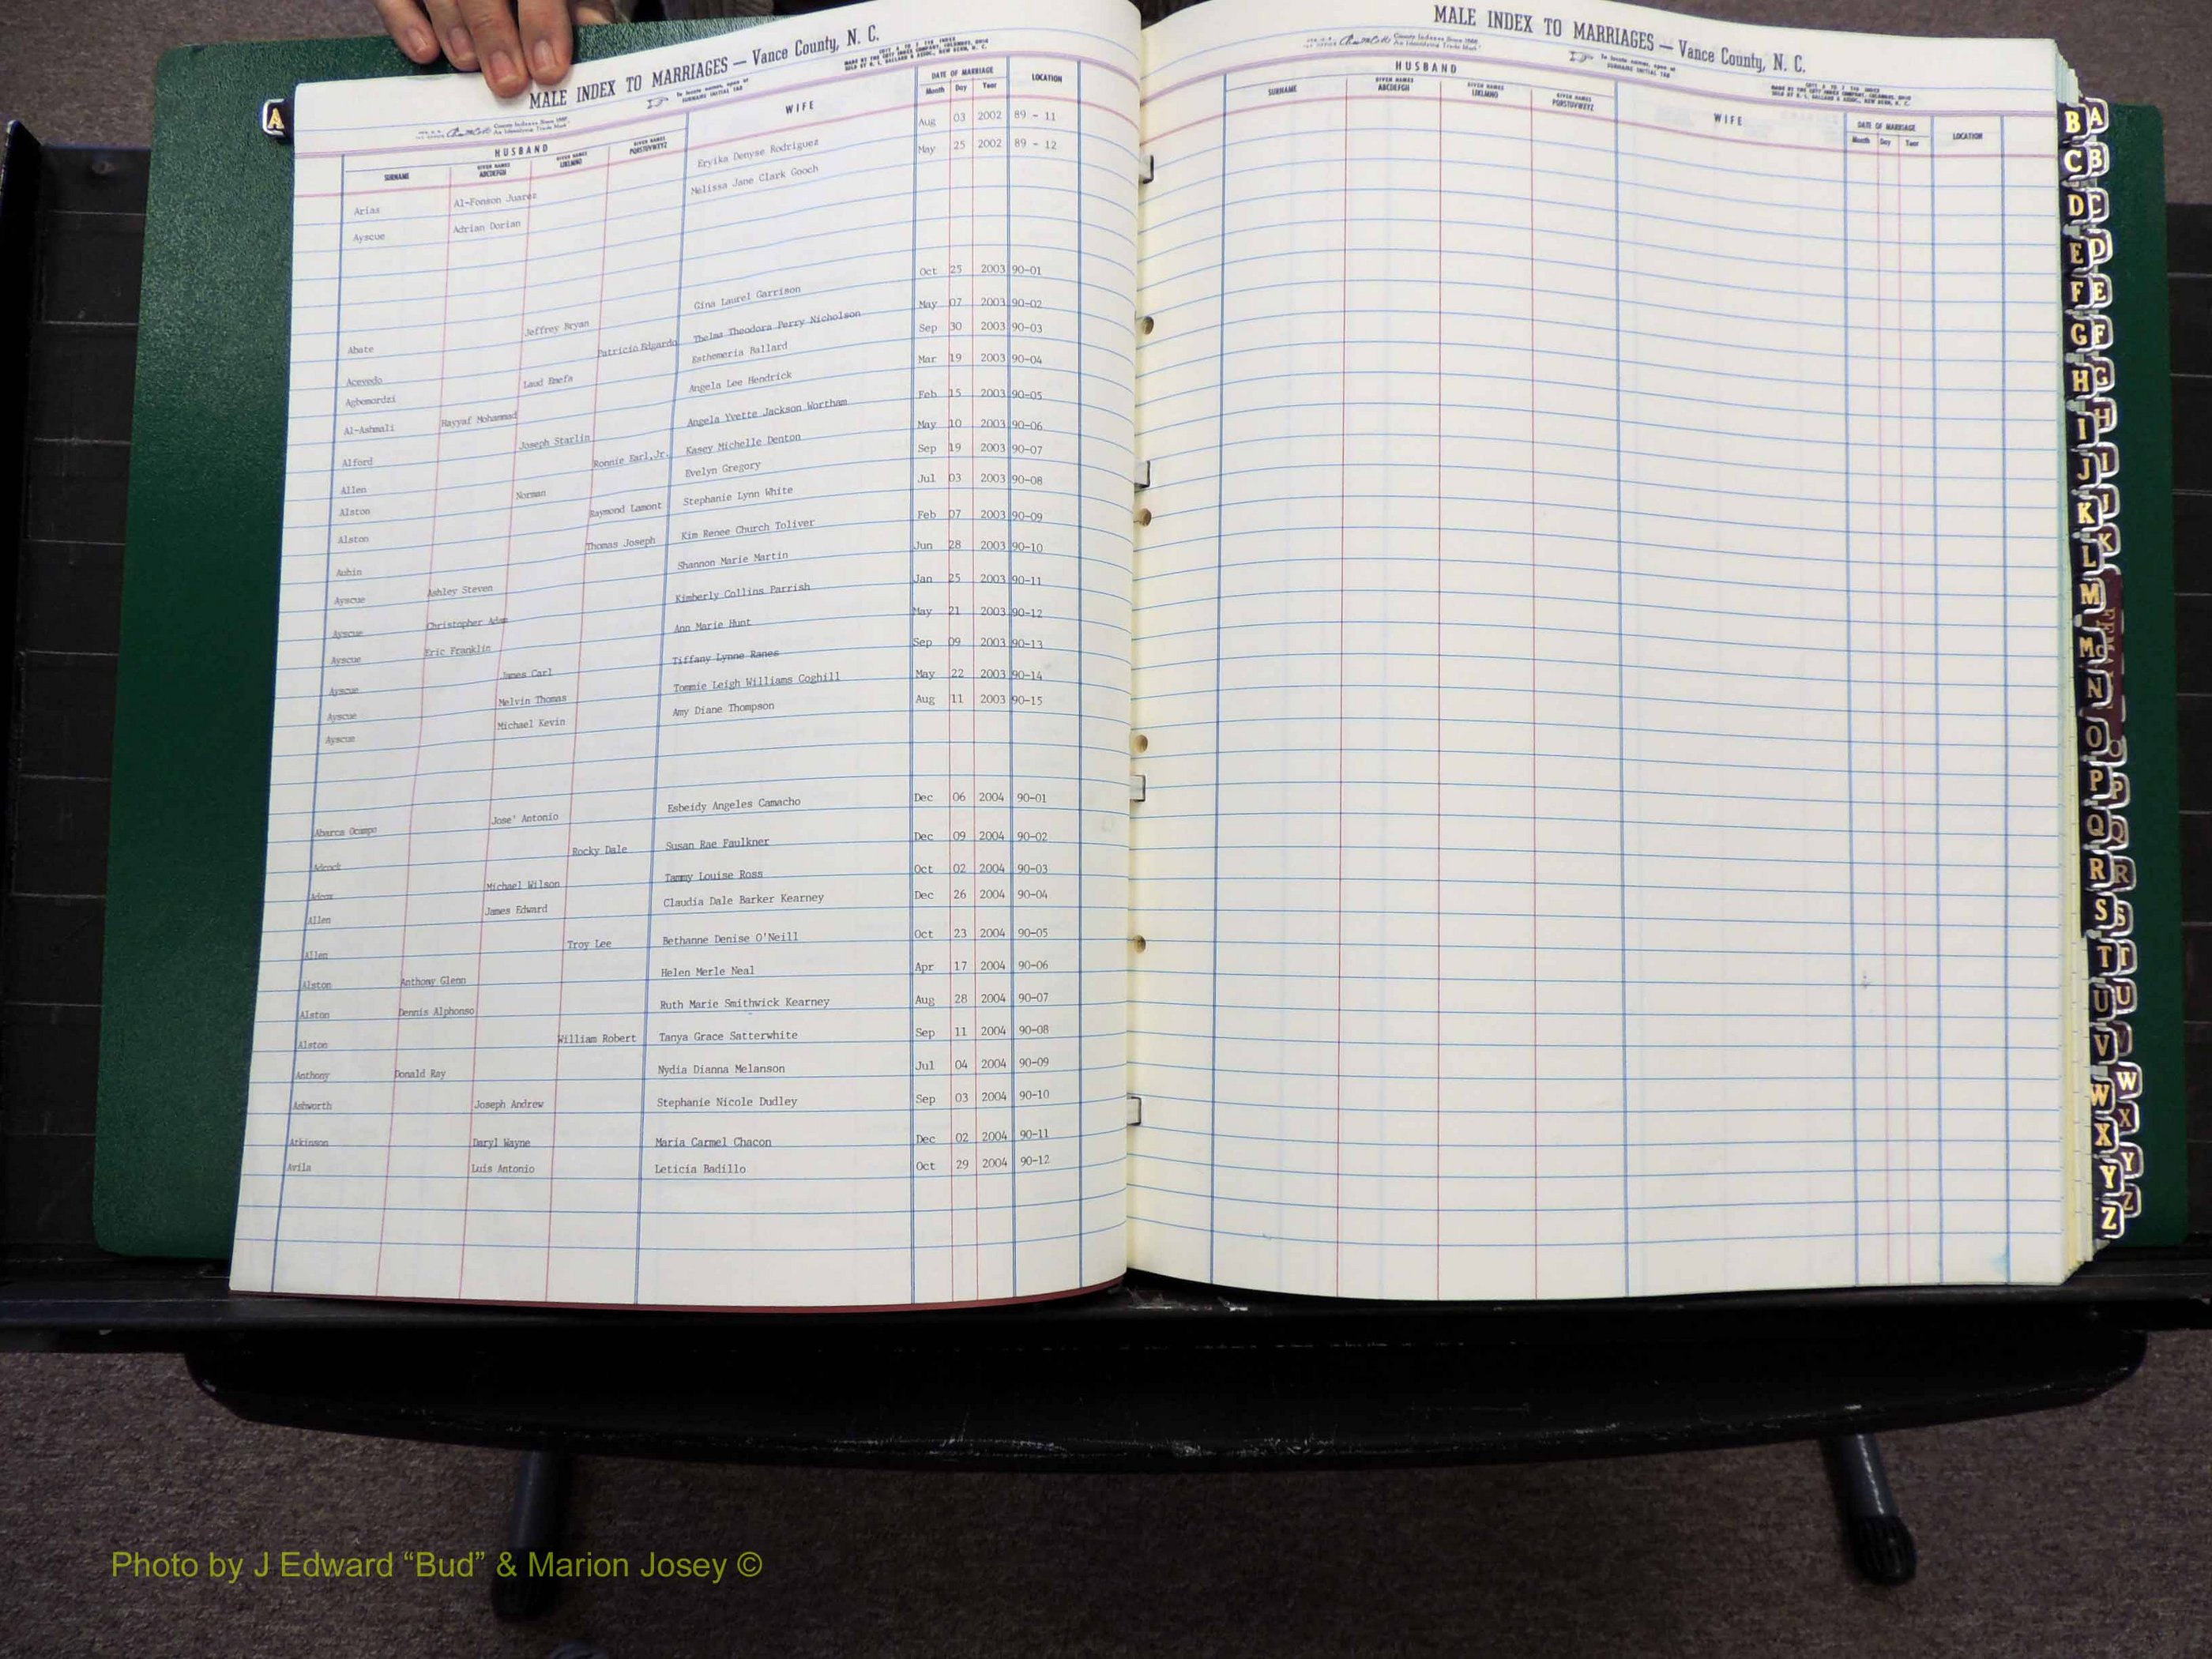 MALE INDEX TO MARRIAGES — Vance County, N. C.
To locate names, open at
SURNAME INITIAL TAB
HUSBAND WIFE DATE OF MARRIAGE LOCATION
SURNAME GIVEN NAMES ABCDEFGH GIVEN NAMES IJKLMNO GIVEN NAMES PQRSTUVWXYZ Month Day Year
Arias Al-Fonson Juarez Eryika Denyse Rodriguez Aug 03 2002 89 - 11
Ayscue Adrian Dorian Melissa Jane Clark Gooch May 25 2002 89 - 12
Abate Jeffrey Bryan Gina Laurel Garrison Oct 25 2003 90-01
Acevedo Patricio Edgardo Thelma Theodora Perry Nicholson May 07 2003 90-02
Agbemordzi Laud Enefa Esthemeria Ballard Sep 30 2003 90-03
Al-Ashmali Hayyaf Mohammad Angela Lee Hendrick Mar 19 2003 90-04
Alford Joseph Starlin Angela Yvette Jackson Wortham Feb 15 2003 90-05
Allen Ronnie Earl,Jr. Kasey Michelle Denton May 10 2003 90-06
Alston Norman Evelyn Gregory Sep 19 2003 90-07
Alston Raymond Lamont Stephanie Lynn White Jul 03 2003 90-08
Aubin Thomas Joseph Kim Renee Church Toliver Feb 07 2003 90-09
Ayscue Ashley Steven Shannon Marie Martin Jun 28 2003 90-10
Ayscue Christopher Adam Kimberly Collins Parrish Jan 25 2003 90-11
Ayscue Eric Franklin Ann Marie Hunt May 21 2003 90-12
Ayscue James Carl Tiffany Lynne Ranes Sep 09 2003 90-13
Ayscue Melvin Thomas Tommie Leigh Williams Coghill May 22 2003 90-14
Ayscue Michael Kevin Amy Diane Thompson Aug 11 2003 90-15
Abarca Ocampo Jose' Antonio Esbeidy Angeles Camacho Dec 06 2004 90-01
Adcock Rocky Dale Susan Rae Faulkner Dec 09 2004 90-02
Adcox Michael Wilson Tammy Louise Ross Oct 02 2004 90-03
Allen James Edward Claudia Dale Barker Kearney Dec 26 2004 90-04
Allen Troy Lee Bethanne Denise O'Neill Oct 23 2004 90-05
Alston Anthony Glenn Helen Merle Neal Apr 17 2004 90-06
Alston Dennis Alphonso Ruth Marie Smithwick Kearney Aug 28 2004 90-07
Alston William Robert Tanya Grace Satterwhite Sep 11 2004 90-08
Anthony Donald Ray Nydia Dianna Melanson Jul 04 2004 90-09
Ashworth Joseph Andrew Stephanie Nicole Dudley Sep 03 2004 90-10
Atkinson Daryl Wayne Maria Carmel Chacon Dec 02 2004 90-11
Avila Luis Antonio Leticia Badillo Oct 29 2004 90-12
MALE INDEX TO MARRIAGES — Vance County, N. C.
To locate names, open at
SURNAME INITIAL TAB
HUSBAND WIFE DATE OF MARRIAGE LOCATION
SURNAME GIVEN NAMES ABCDEFGH GIVEN NAMES IJKLMNO GIVEN NAMES PQRSTUVWXYZ Month Day Year
A
B A
C B
D C
E D
F E
G F
H G
I H
J I
K J
L K
M
Mc
N
O O
P P
Q Q
R R
S S
T T
U U
V V
W W
X X
Y Y
Z Z
Photo by J Edward “Bud” & Marion Josey ©